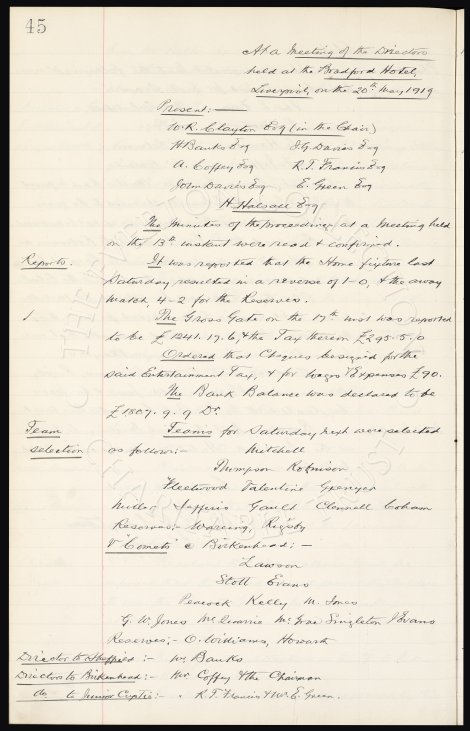 45
At a Meeting of the Directors
held at the Bradford Hotel,
Liverpool, on the 20th May 1919
Present:-
W.R. Clayton Esq (in the Chair)
H Banks Esq J.G. Davies Esq
A. Coffey Esq R.T. Francis Esq
John Davies Esq E. Green Esq
H. Halsall Esq
The Minutes of the proceedings at a Meeting held
on the 13th instant were read & confirmed.
Reports. It was reported that the Home fixture last
Saturday resulted in a reverse of 1-0, & the away
match, 4-2 for the Reserves.
The Gross Gate on the 17th inst was reported
to be £1241.17.6, & the Tax thereon £295.5.0
Ordered that Cheques be signed for the
said Entertainment Tax, & for Wages & Expenses £90.
The Bank Balance was declared to be
£1807.9.9 Dr.
Team Teams for Saturday next were selected
selection as follow:- Mitchell
Thompson Robinson
Fleetwood Valentine Grenyer
Miller Jefferis Gault Clennell
Reserves:- Wareing, Rigsby
V "Comets" @ Birkenhead:-
Lawson
Stott Evans
Peacock Kelly M. Jones
G.W. Jones Singleton J Evans
Reserves:- O. Williams, Howarth
Director to Sheffield:- Mr Banks
Directors to Birkenhead:- Mr Coffey & the Chairman
do to Junior Cuptie:- " R.T. Francis & Mr E. Green.